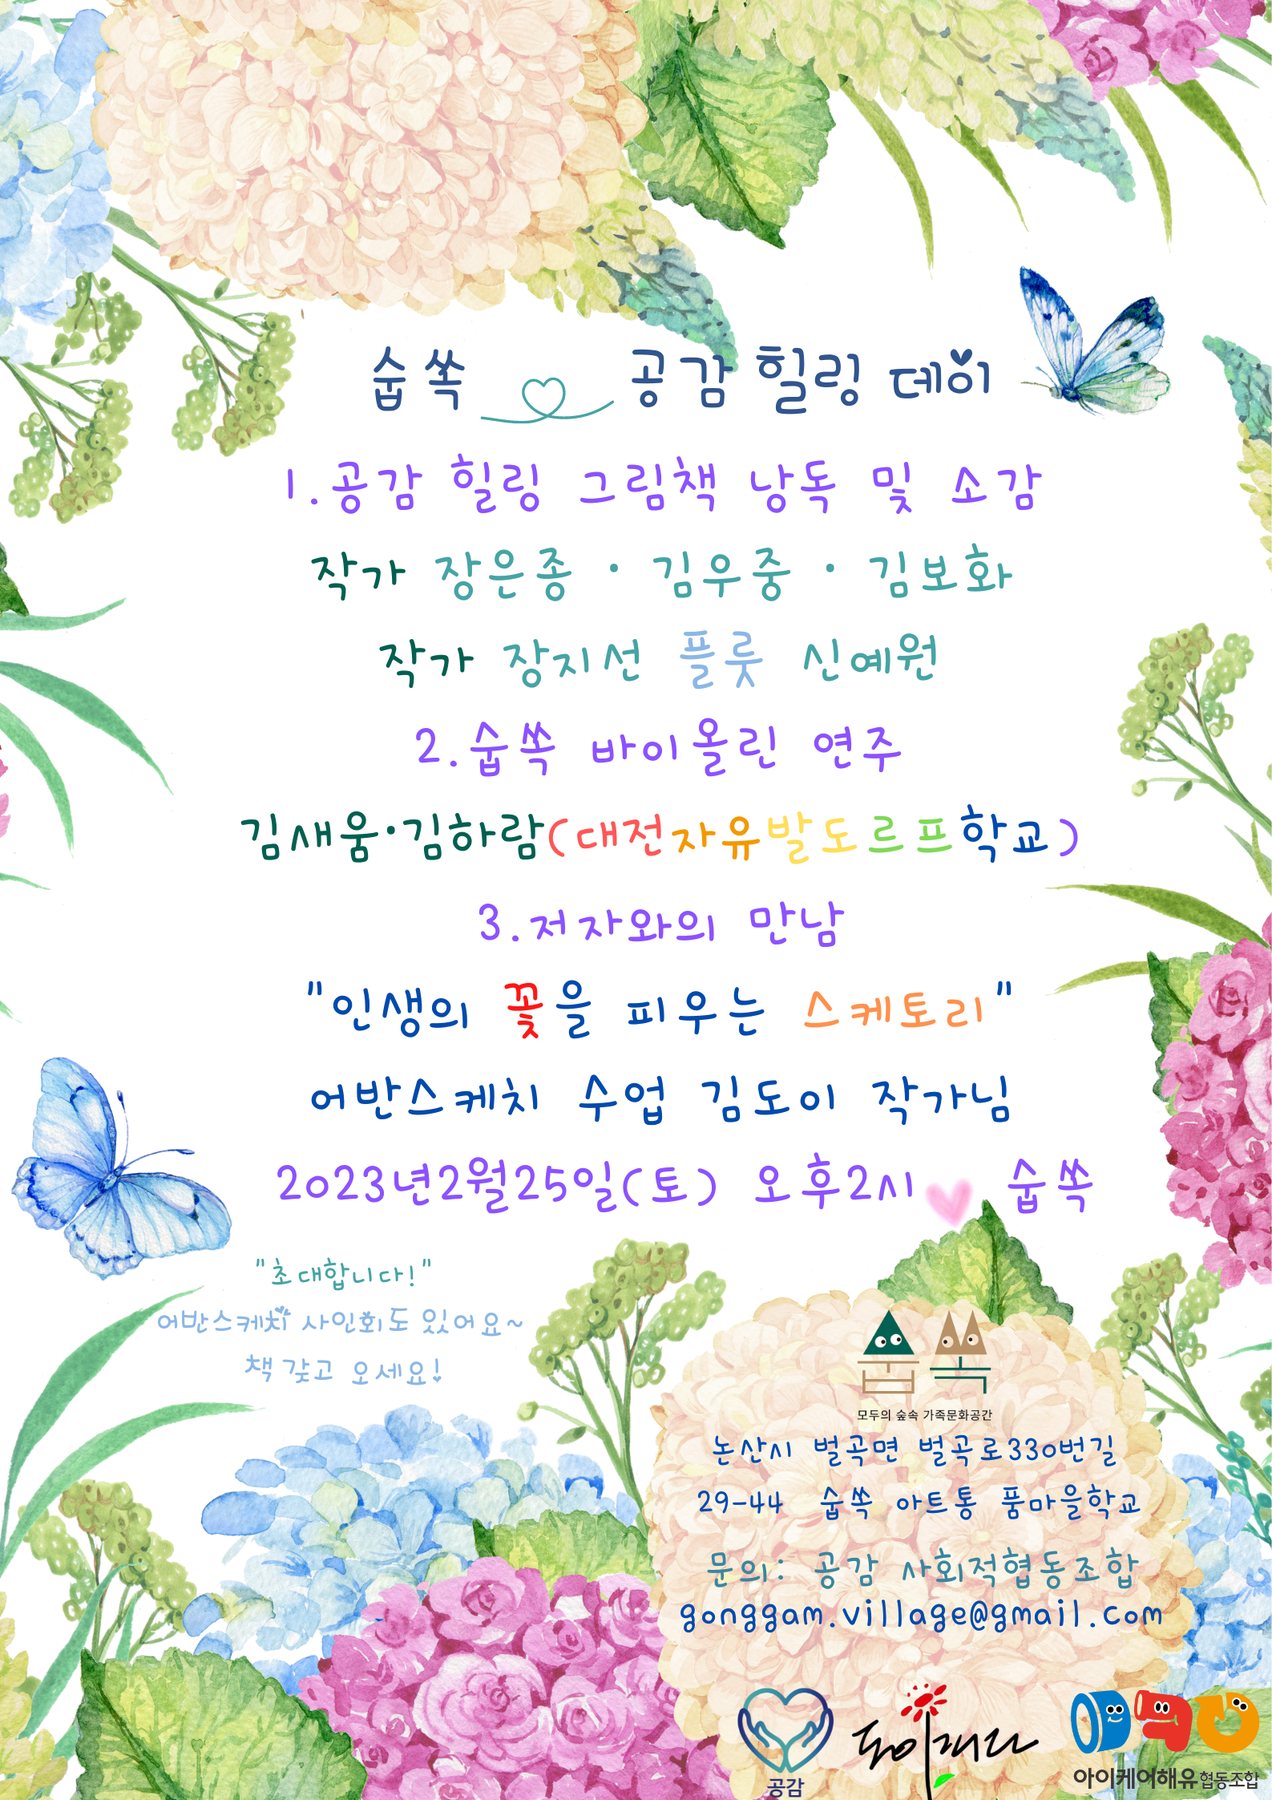 숩쏙 공감 힐링 데이
1.공감 힐링 그림책 낭독 및 소감
작가 장은종 · 김우중 · 김보화
작가 장지선 플룻 신예원
2.숩쏙 바이올린 연주
김새움·김하람(대전자유발도르프학교)
3.저자와의 만남
"인생의 꽃을 피우는 스케토리"
어반스케치 수업 김도이 작가님
2023년2월25일(토) 오후2시 숩쏙
"초대합니다!"
어반스케치 사인회도 있어요~
책 갖고 오세요!
숩쏙
모두의 숲속 가족문화공간
논산시 벌곡면 벌곡로330번길
29-44 숩쏙 아트통 품마을학교
문의: 공감 사회적협동조합
gonggam.village@gmail.com
공감
아이케어해유협동조합